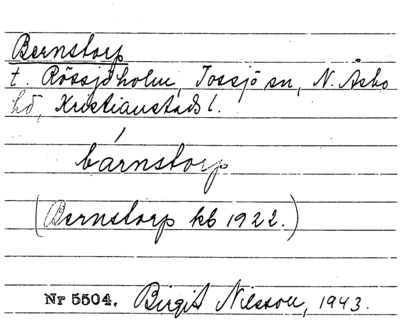 Bernstorp
t. Rössjöholm, Tossjö sn, N. Åsbo
hd, Kristianstads l.
bárnstorp
(Bernstorp kb 1922.)
Nr 5504. Birgit Nilsson, 1943.